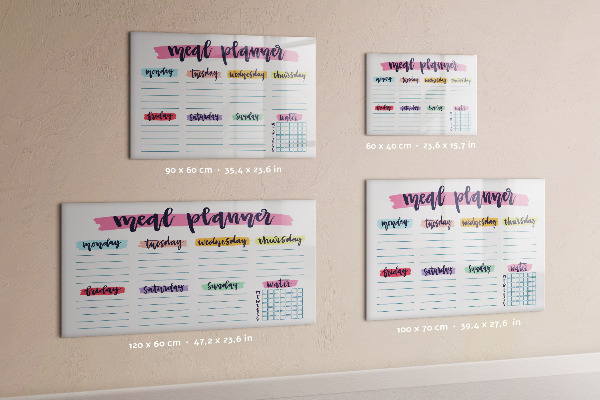 meal planner
monday tuesday wednesday thursday
friday saturday sunday water
90 x 60 cm • 35,4 x 23,6 in
meal planner
monday tuesday wednesday thursday
friday saturday sunday water
60 x 40 cm • 23,6 x 15,7 in
meal planner
monday tuesday wednesday thursday
friday saturday sunday water
M
T
W
T
F
S
S
120 x 60 cm • 47,2 x 23,6 in
meal planner
monday tuesday wednesday thursday
friday saturday sunday water
100 x 70 cm • 39,4 x 27,6 in